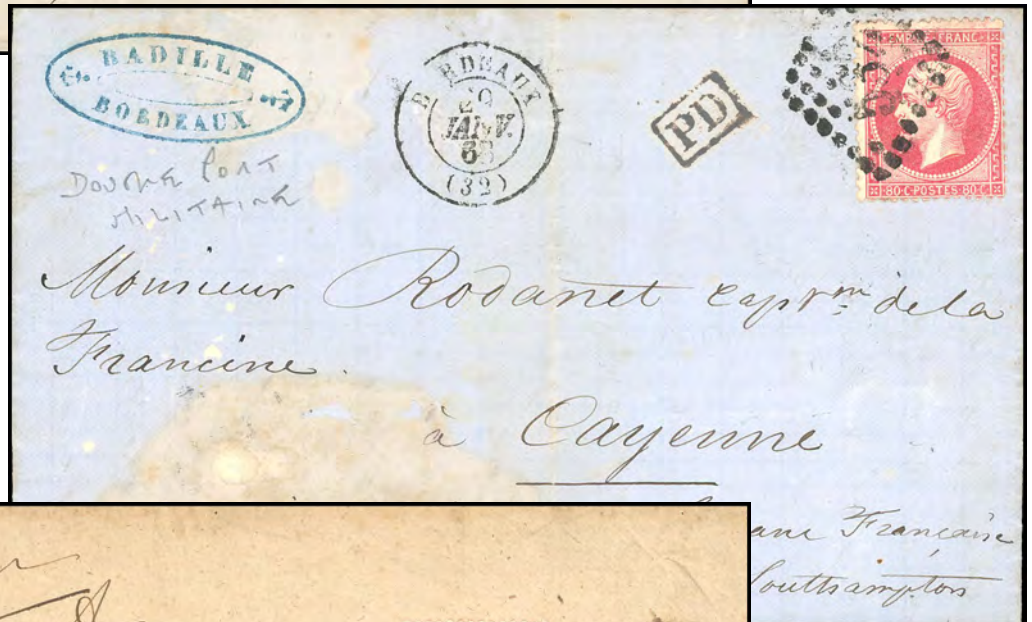 BADILLE
BORDEAUX
BORDEAUX
29
JANV.
(32)
PD
EMPIRE FRANC
80·C·POSTES·80·C
DOUBLE PORT
MILITAIRE
Monsieur Rodanet cap.ne de la
Francine.
à Cayenne
ane Française
Southampton